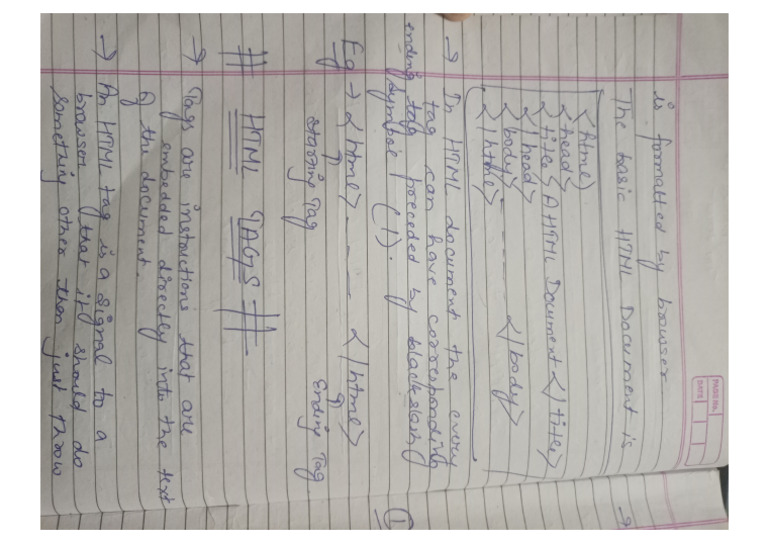 PAGE NO.
DATE
is formatted by browser
The basic HTML Document is
<html>
<head>
<title> A HTML Document </title>
</head>
<body> </body>
</html>
→ In HTML document the every
tag can have corresponding
ending tag preceded by blackslash
symbol (/).
Eg → <html> ---- </html>
Starting Tag Ending Tag
# HTML TAGS #
→ Tags are instructions that are
embedded directly into the text
of the document.
→ An HTML tag is a signal to a
browser that it should do
something other then just throw
1